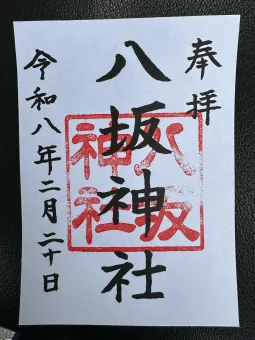 奉拝
八坂神社
八坂
神社
令和八年二月二十日